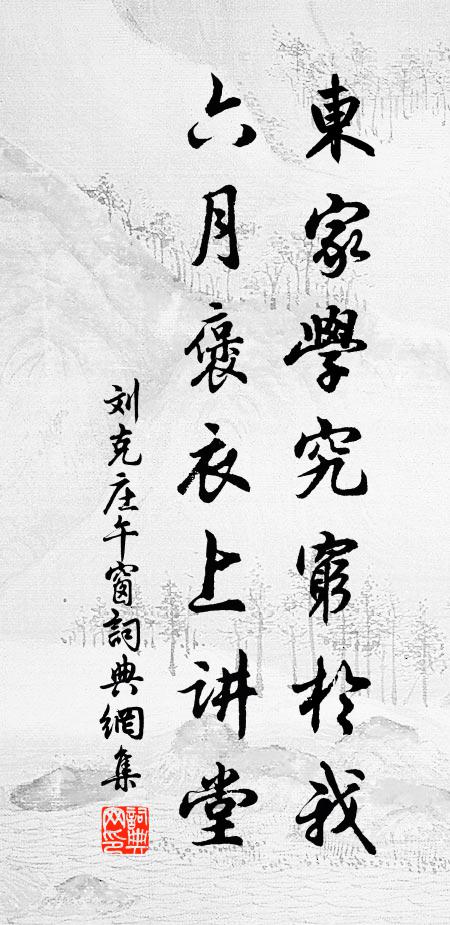 東家學究窮於我
六月褒衣上讲堂
刘克庄午窗詞典網集
詞典网印